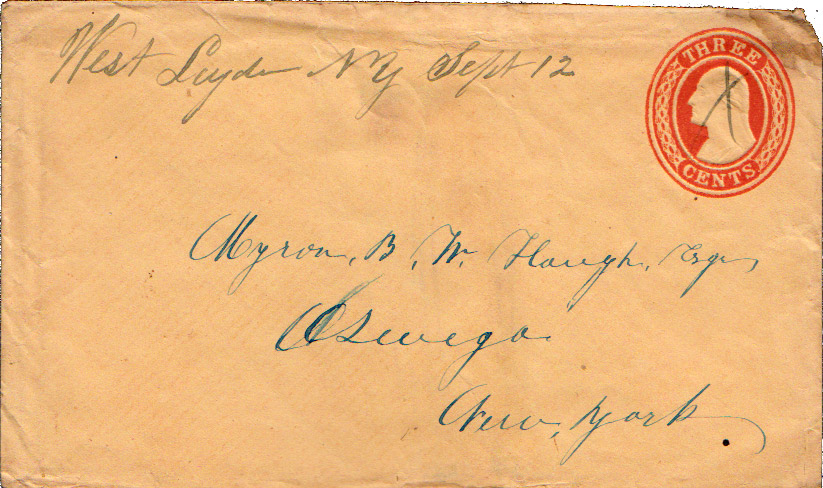 West Leyden NY Sept 12
THREE
CENTS
Myron. B. W. Hough. Esqr,
Oswego.
New, York